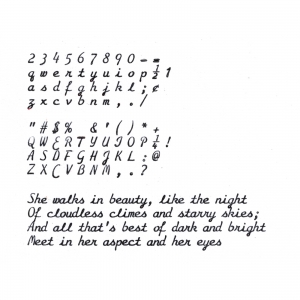 2 3 4 5 6 7 8 9 0 - =
q w e r t y u i o p ½ 1
a s d f g h j k l ; ¢
z x c v b n m , . /
" # $ % & ' ( ) * +
Q W E R T Y U I O P ¼ !
A S D F G H J K L : @
Z X C V B N M , . ?
She walks in beauty, like the night
Of cloudless climes and starry skies;
And all that's best of dark and bright
Meet in her aspect and her eyes